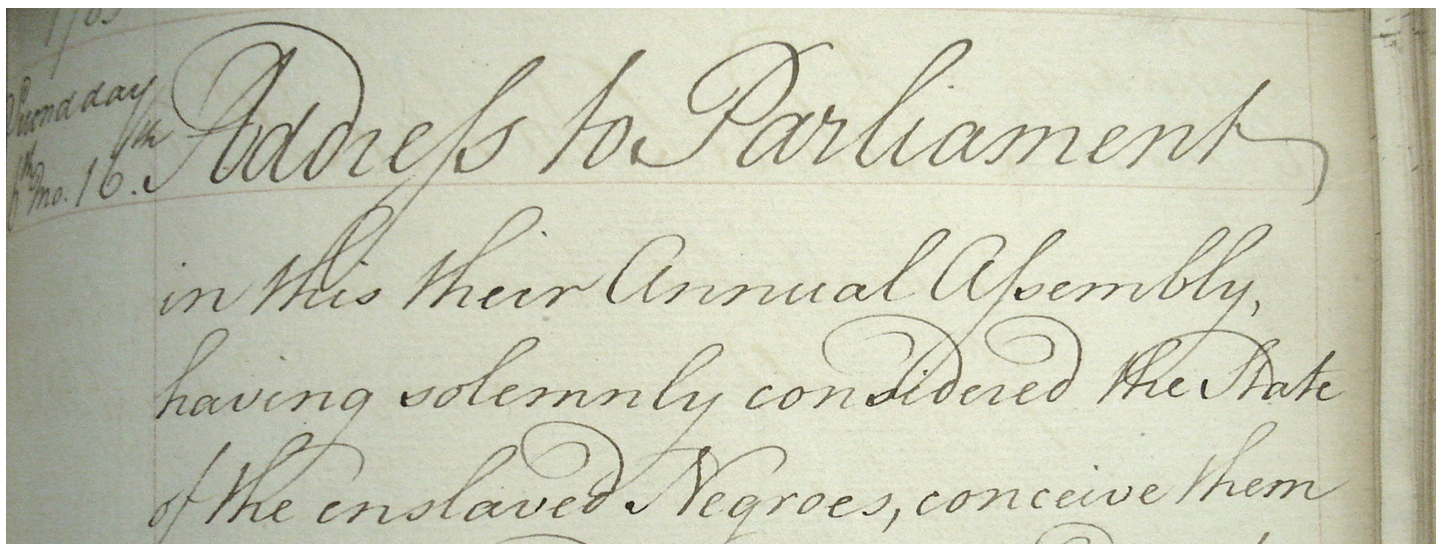 Second day
6th mo. 16th
Addreſs to Parliament
in this their Annual Aſsembly,
having solemnly considered the State
of the enslaved Negroes, conceive them